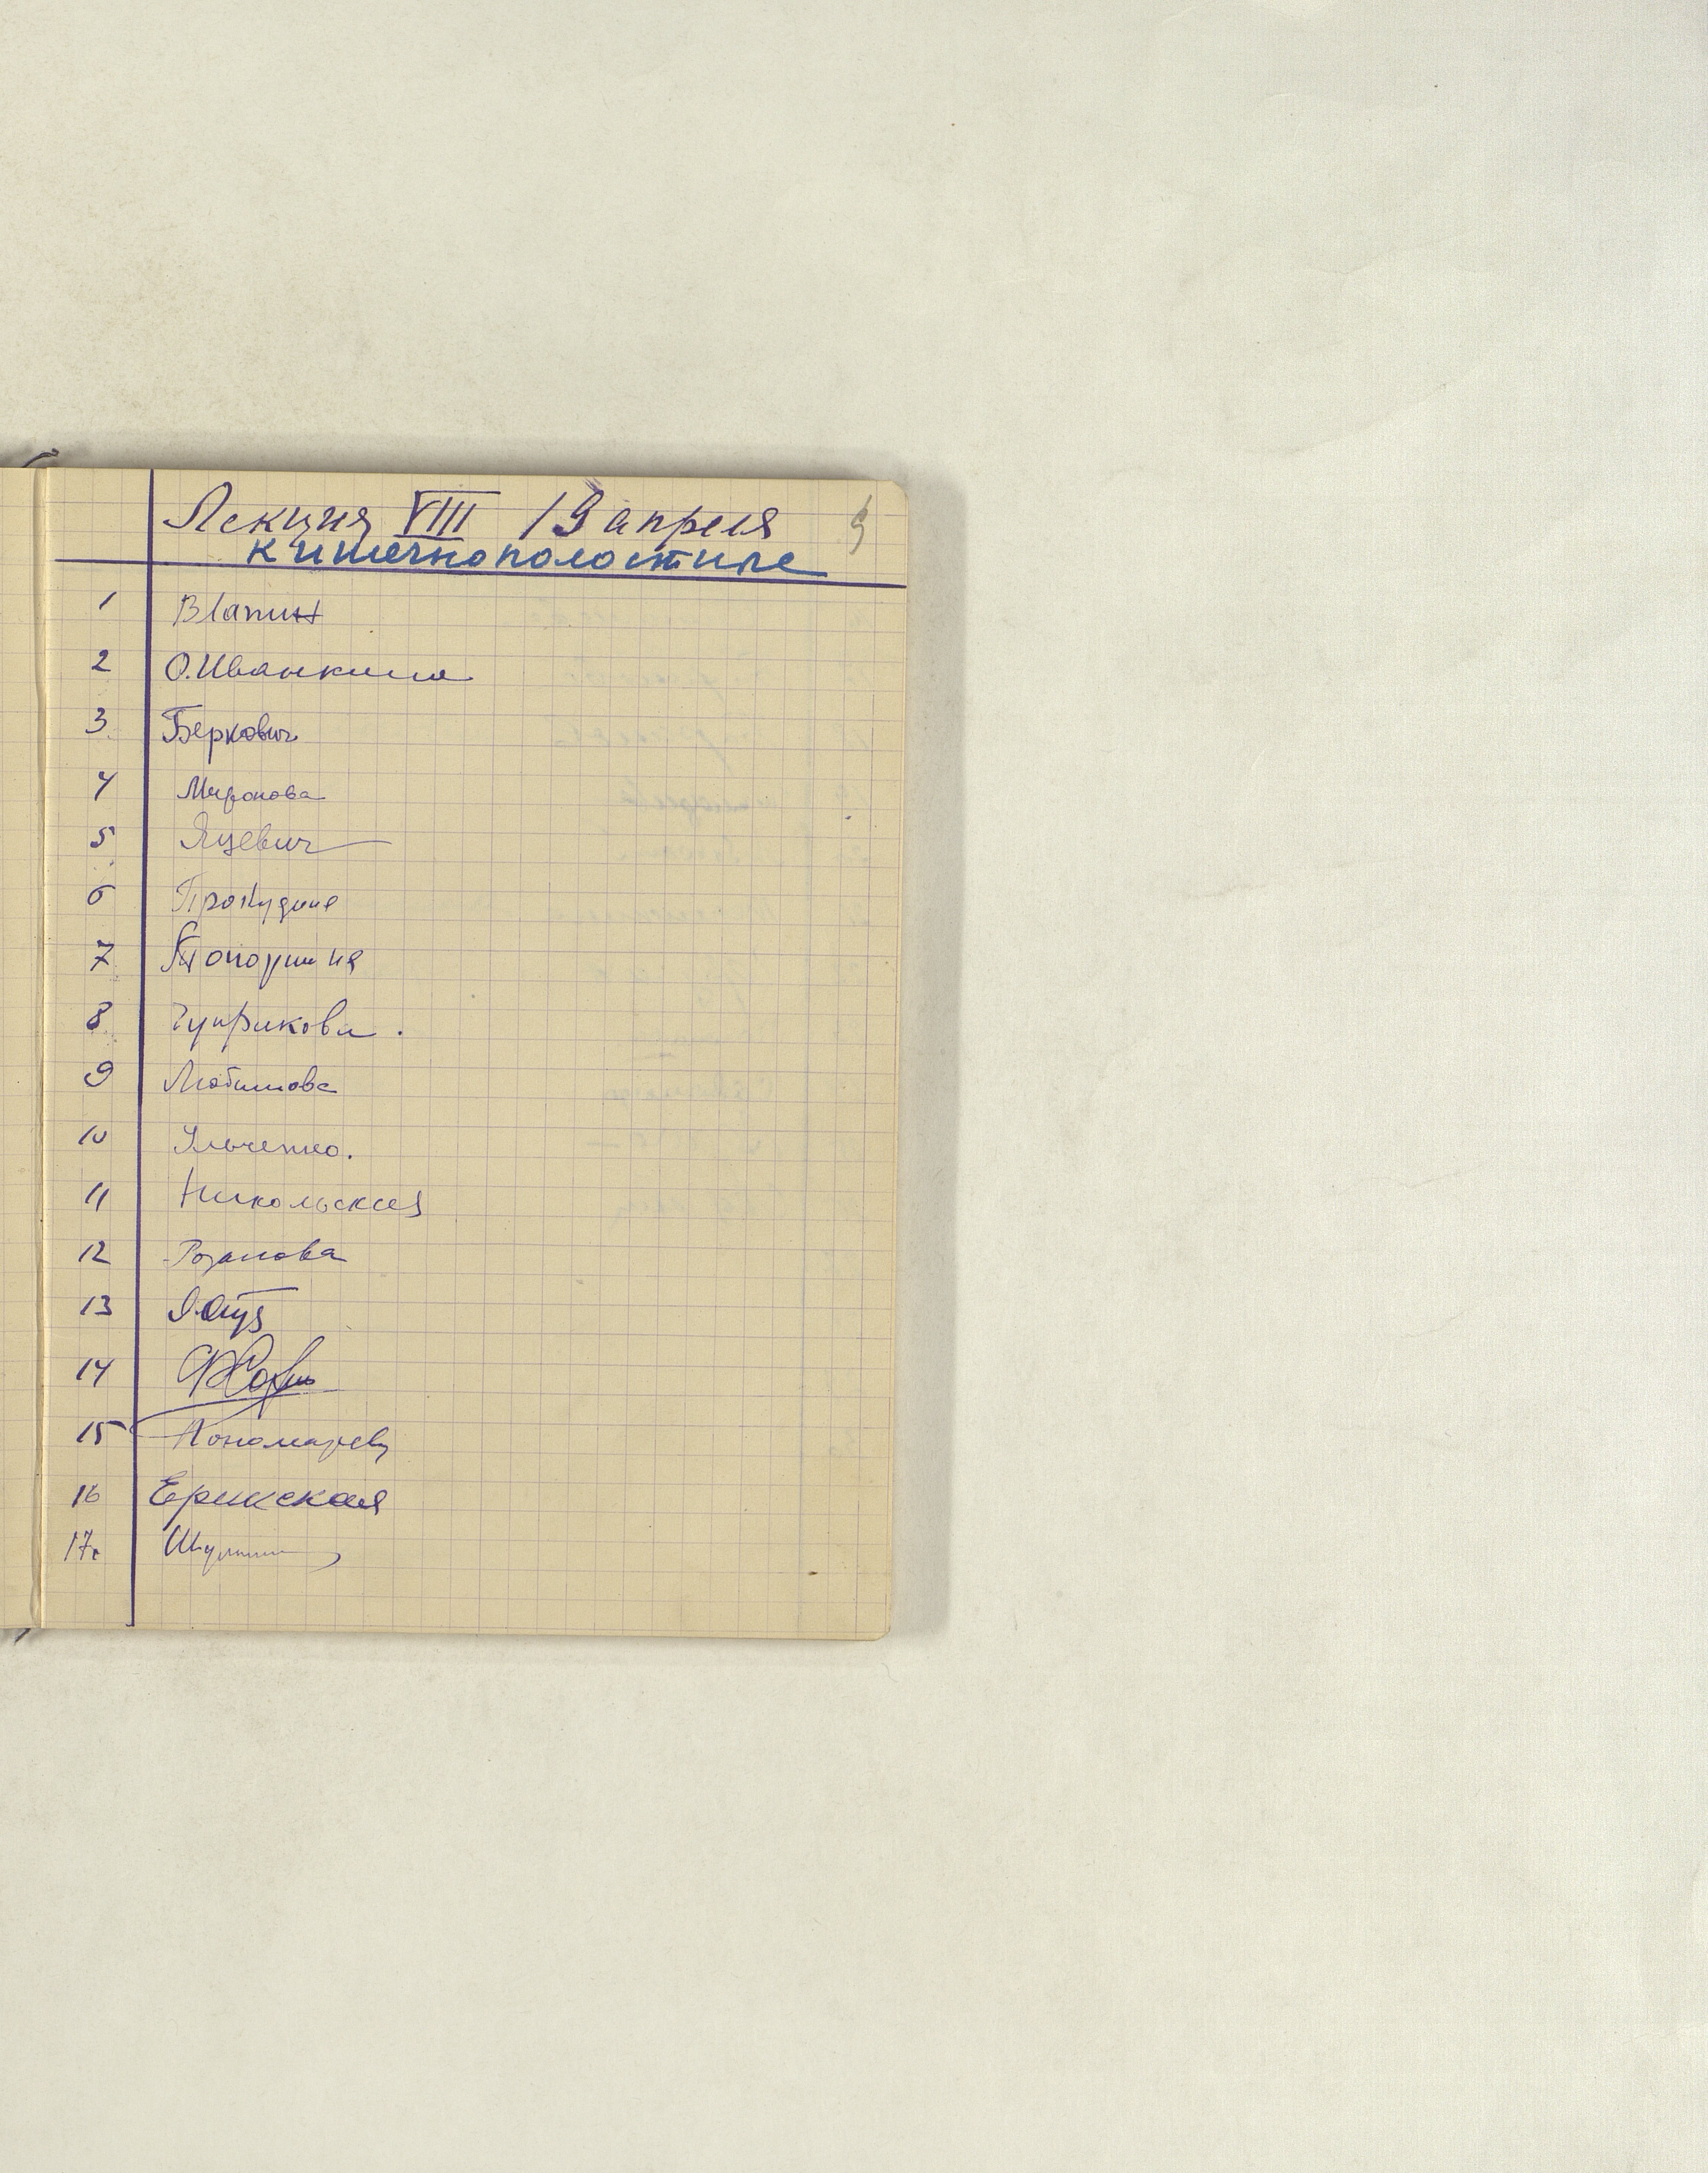 Лекция VIII 19 апреля
9
кишечнополостные
1 Влапин
2 О.Иванкина
3 Беркович
4 Миронова
5 Яцевич
6 Прокудина
7 Топоршия
8 Чуприкова.
9 Любимова
10 Ильченко.
11 Никольская
12 Розанова
13
14
15 Пономарева
16 Ерижская
17.